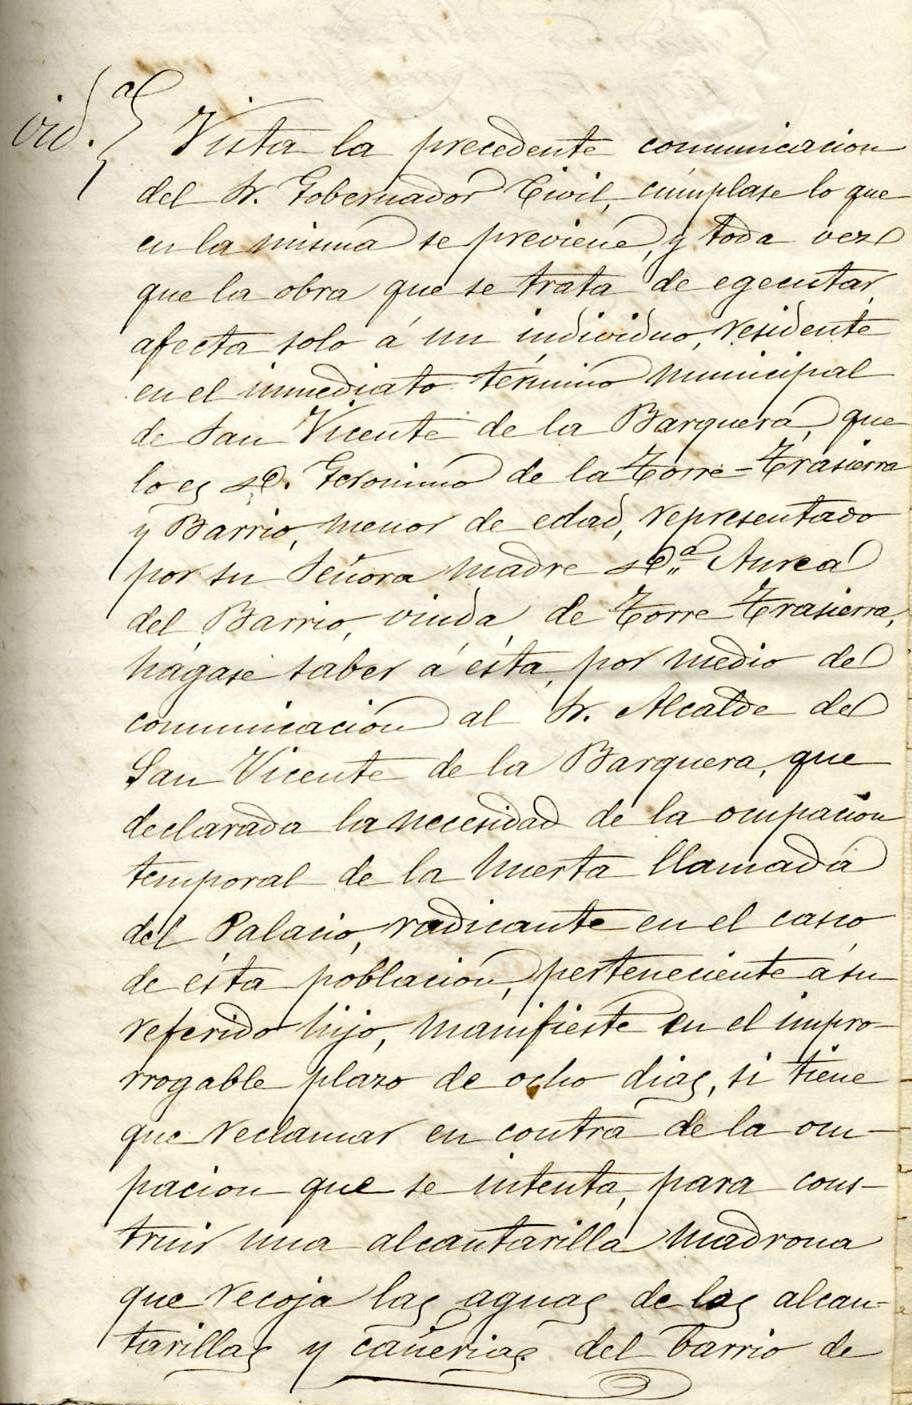 vid.ª} Vista la precedente comunicacion
del Sr. Gobernador Civil, cúmplase lo que
en la misma se previene, y toda vez
que la obra que se trata de egecutar,
afecta solo á un individuo, residente
en el inmediato término municipal
de San Vicente de la Barquera, que
lo es D. Geronimo de la Torre-Trasierra
y Barrio, menor de edad, representado
por su Señora madre D.ª Aurea
del Barrio, viuda de Torre Trasierra,
hágase saber á ésta, por medio de
comunicación al Sr. Alcalde de
San Vicente de la Barquera, que
declarada la necesidad de la ocupación
temporal de la huerta llamada
del Palacio, radicante en el casco
de ésta población, perteneciente á su
referido hijo, manifieste en el impro-
rrogable plazo de ocho dias, si tiene
que reclamar en contra de la ocu-
pacion que se intenta, para cons-
truir una alcantarilla madrona
que recoja las aguas de las alcan-
tarillas y cañerias del barrio de